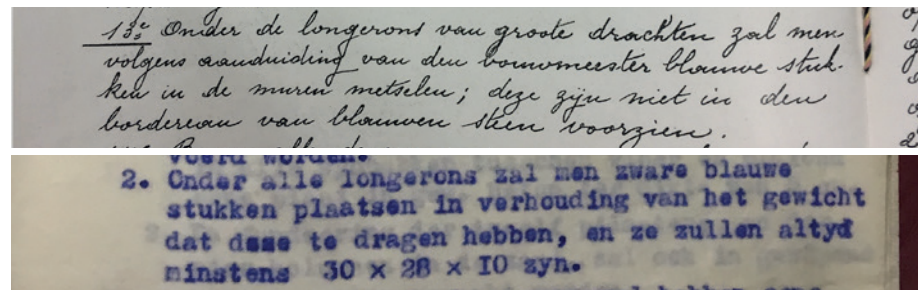 13e Onder de longerons van groote drachten zal men
volgens aanduiding van den bouwmeester blauwe stuk-
ken in de muren metselen; deze zijn niet in den
bordereau van blauwen steen voorzien.
voerd worden.
2. Onder alle longerons zal men zware blauwe
stukken plaatsen in verhouding van het gewicht
dat dese te dragen hebben, en ze zullen altyd
minstens 30 x 28 x IO zyn.